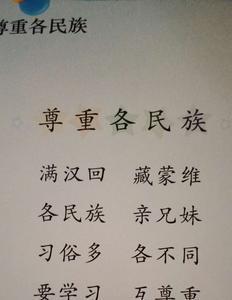 尊重各民族
尊重各民族
满汉回 藏蒙维
各民族 亲兄妹
习俗多 各不同
要学习 互尊重